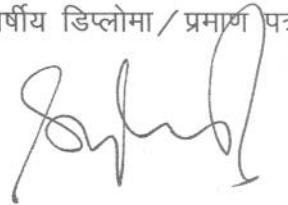 र्षीय डिप्लोमा / प्रमाण पत्र